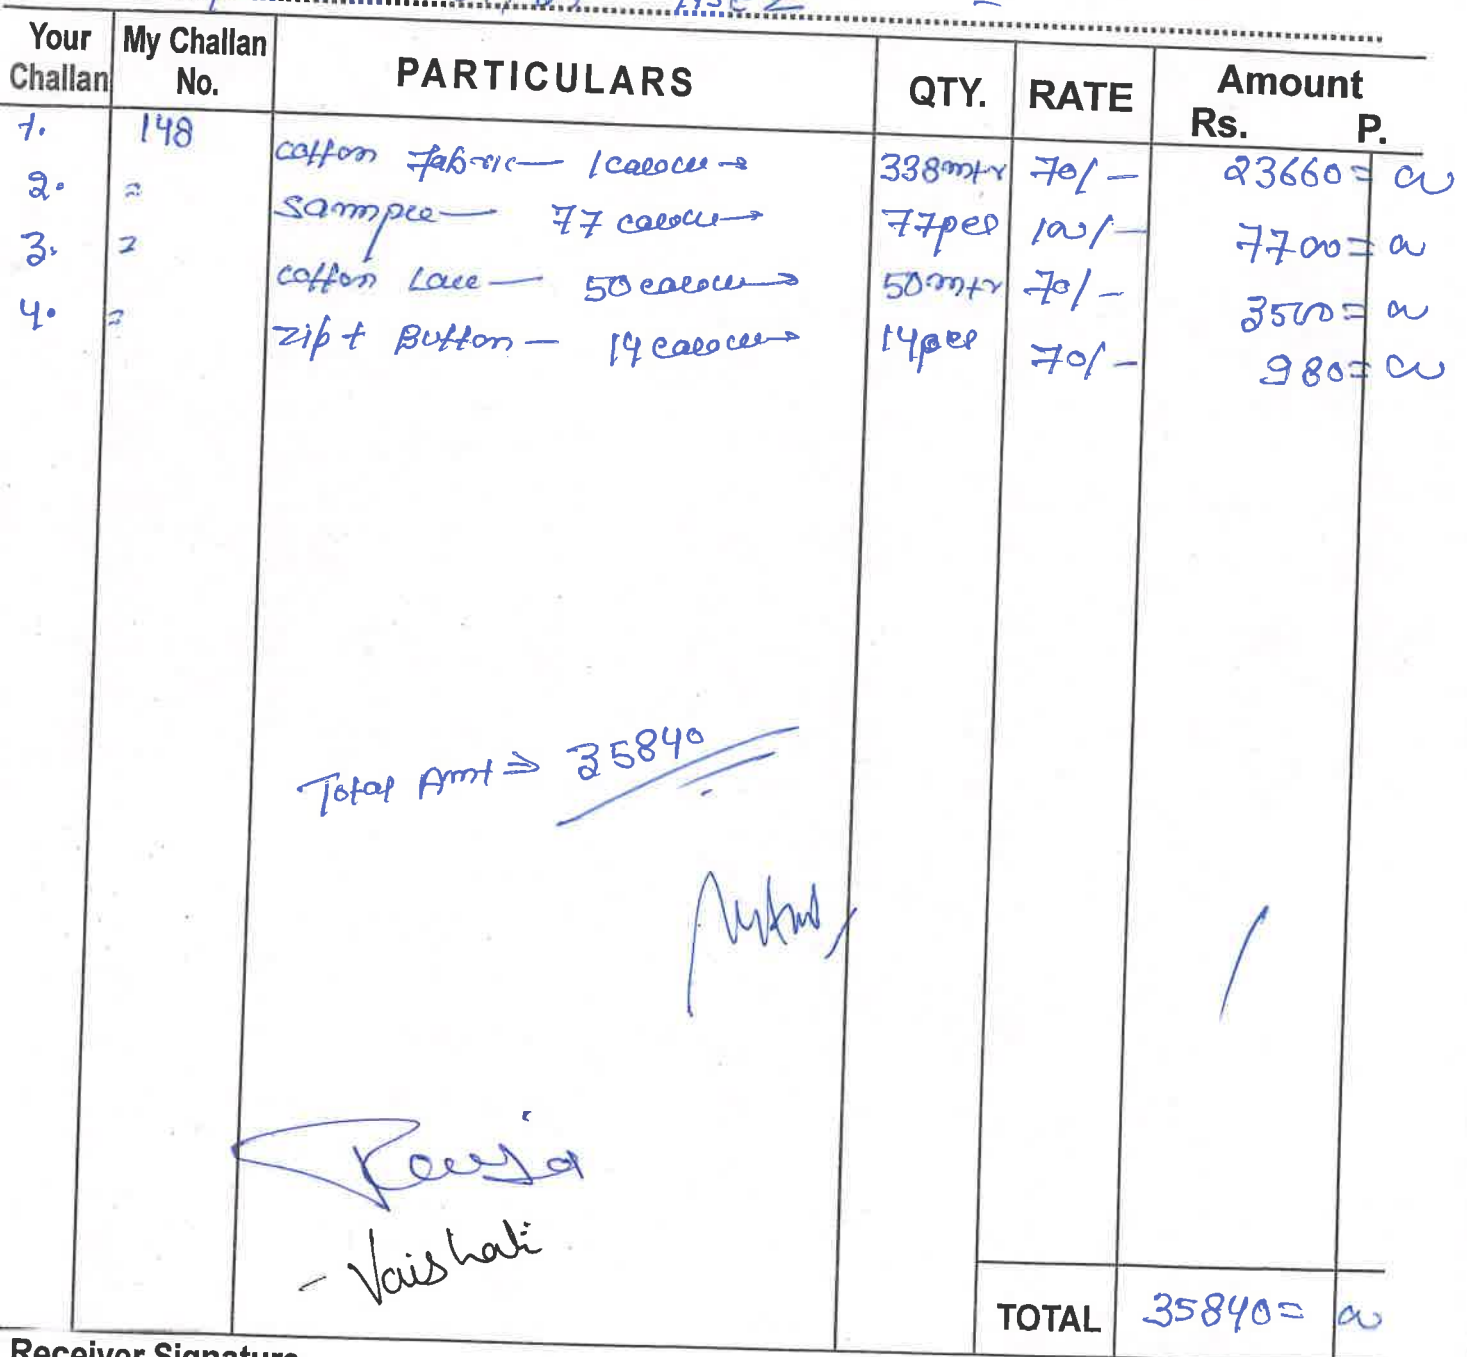 Your Challan My Challan No. PARTICULARS QTY. RATE Amount Rs. P.
1. 148 cotton fabric — 1 colour → 338 mtr 70/- 23660 = 00
2. " Sample — 77 colour → 77 pcs 100/- 7700 = 00
3. " cotton Lace — 50 colour → 50 mtr 70/- 3500 = 00
4. " Zip + Button — 14 colour → 14 pcs 70/- 980 = 00
Total Amt ⇒ 35840
- Vaishali
TOTAL 35840 = 00
Receiver Signature